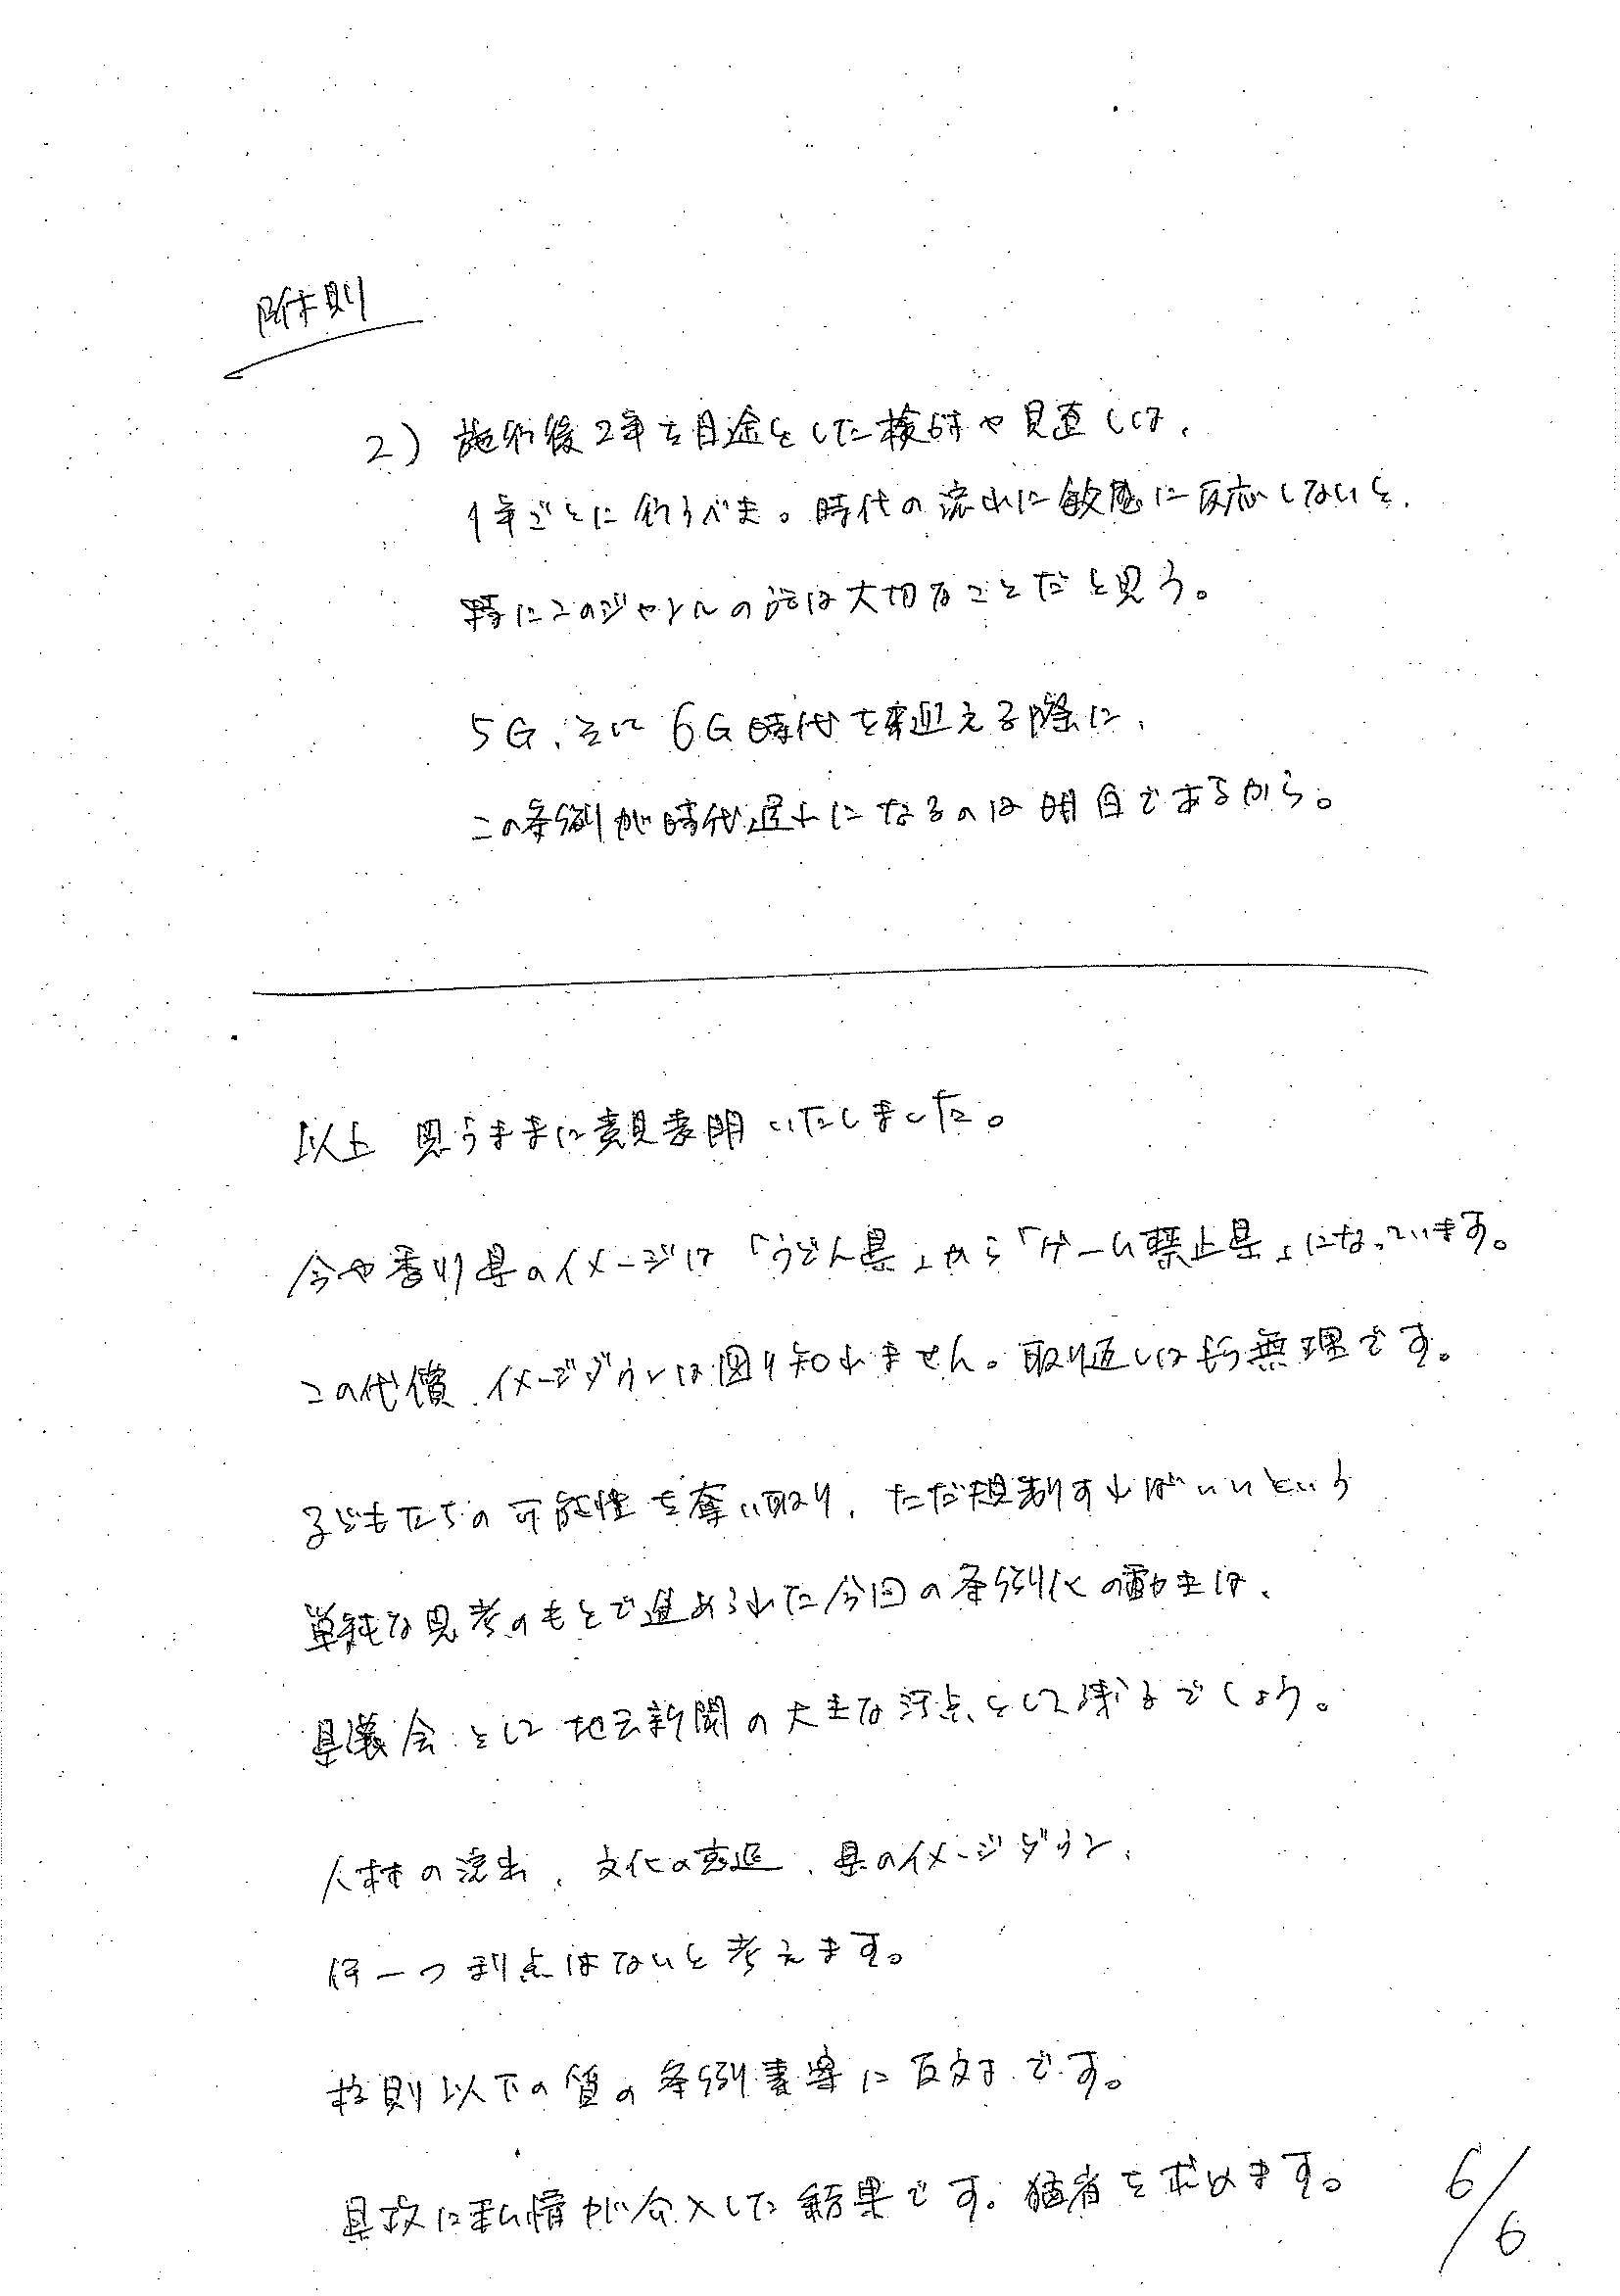 附則
2) 施行後2年を目途とした検討や見直しは、
1年ごとに行うべき。時代の流れに敏感に反応しないと、
特にこのジャンルの話は大切なことだと思う。
5G、そして6G時代を迎える際に、
この条例が時代遅れになるのは明白であるから。
以上 思うままに意見表明いたしました。
今や香川県のイメージは「うどん県」から「ゲーム禁止県」になっています。
この代償、イメージダウンは図り知れません。取り返しはもう無理です。
子どもたちの可能性を奪い取り、ただ規制すればいいという
単純な思考のもとで進められた今回の条例化の動きは、
県議会 そして 地元新聞の大きな汚点として残るでしょう。
人材の流出、文化の衰退、県のイメージダウン、
何一つ利点はないと考えます。
校則以下の質の条例素案に反対です。
県政に私情が介入した結果です。猛省を求めます。
6/6